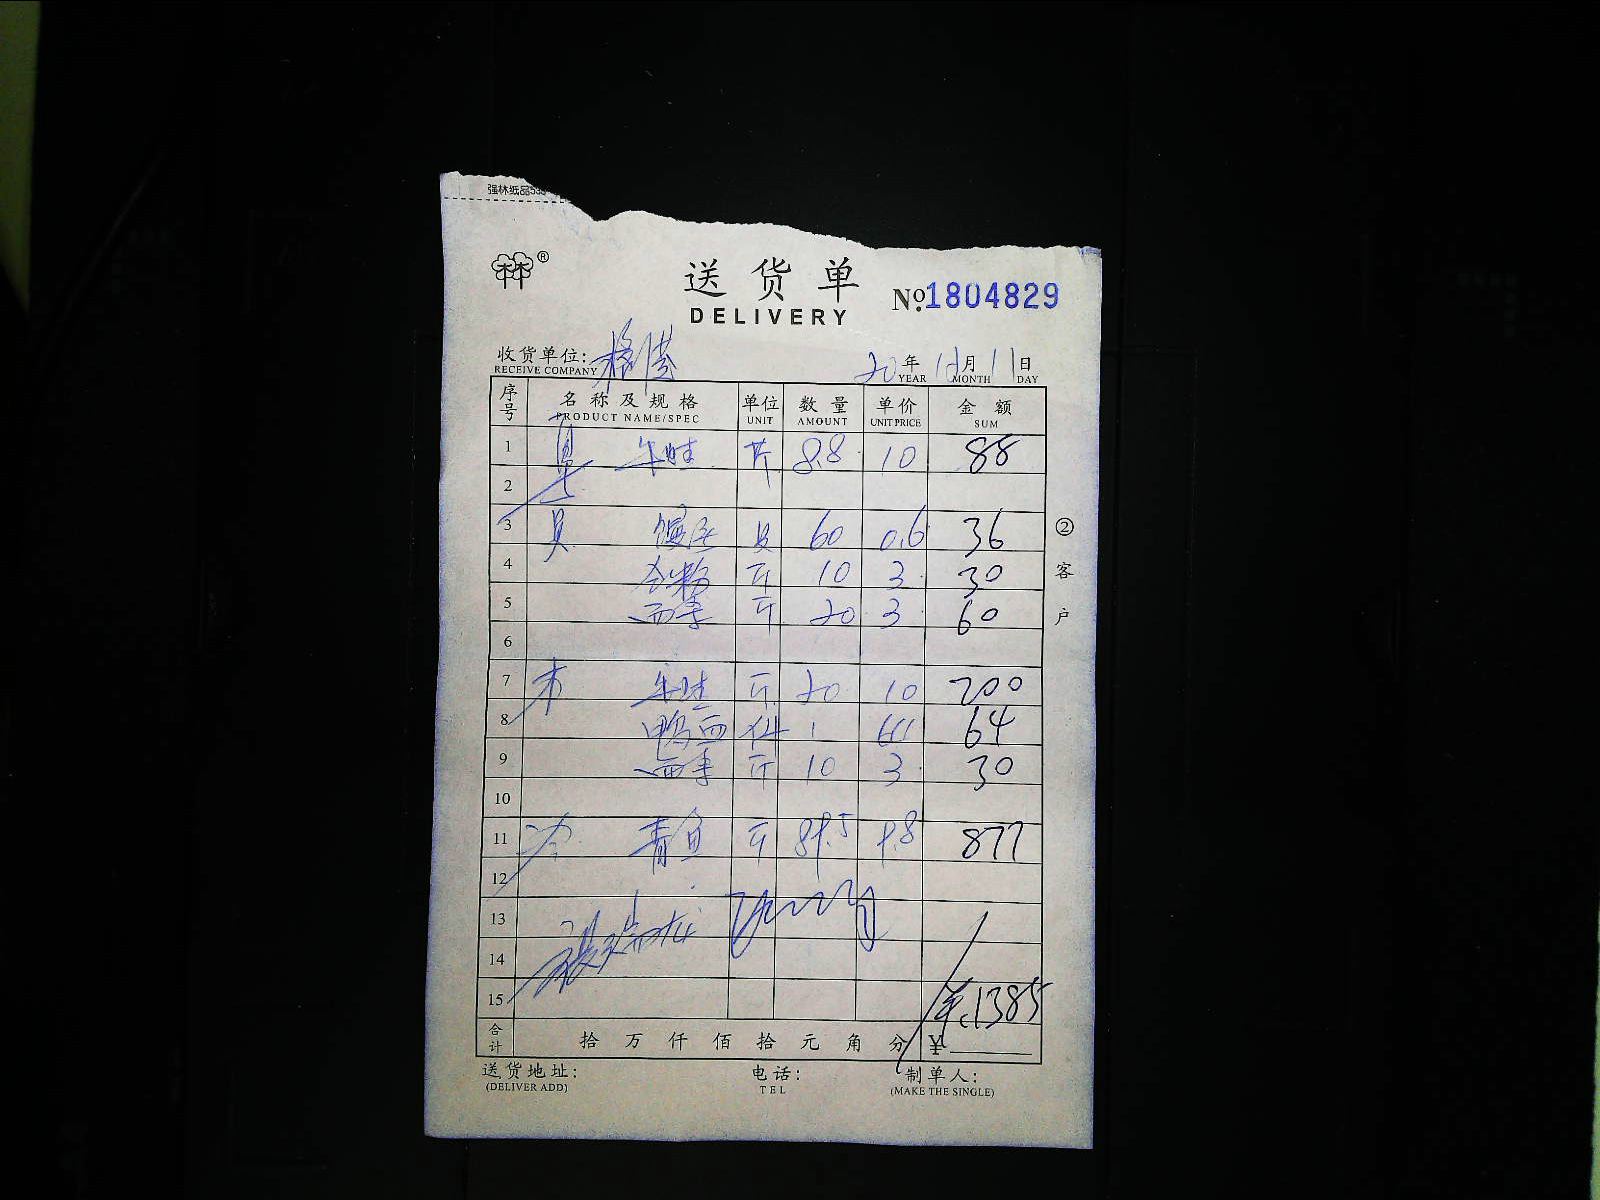 强林纸品535
送货单
DELIVERY
No. 1804829
收货单位: 20年12月11日
RECEIVE COMPANY YEAR MONTH DAY
序号 名称及规格 单位 数量 单价 金额
PRODUCT NAME/SPEC UNIT AMOUNT UNIT PRICE SUM
1 牛蛙 斤 8.8 10 88
2
3 60 0.6 36
4 斤 10 3 30
5 斤 20 3 60
6
7 牛蛙 斤 20 10 200
8 鸭血 件 1 64 64
9 斤 10 3 30
10
11 冷 青鱼 斤 89.5 9.8 877
12
13
14
15 1385
合计 拾万仟佰拾元角分 ¥
②客户
送货地址: 电话: 制单人:
(DELIVER ADD) TEL (MAKE THE SINGLE)